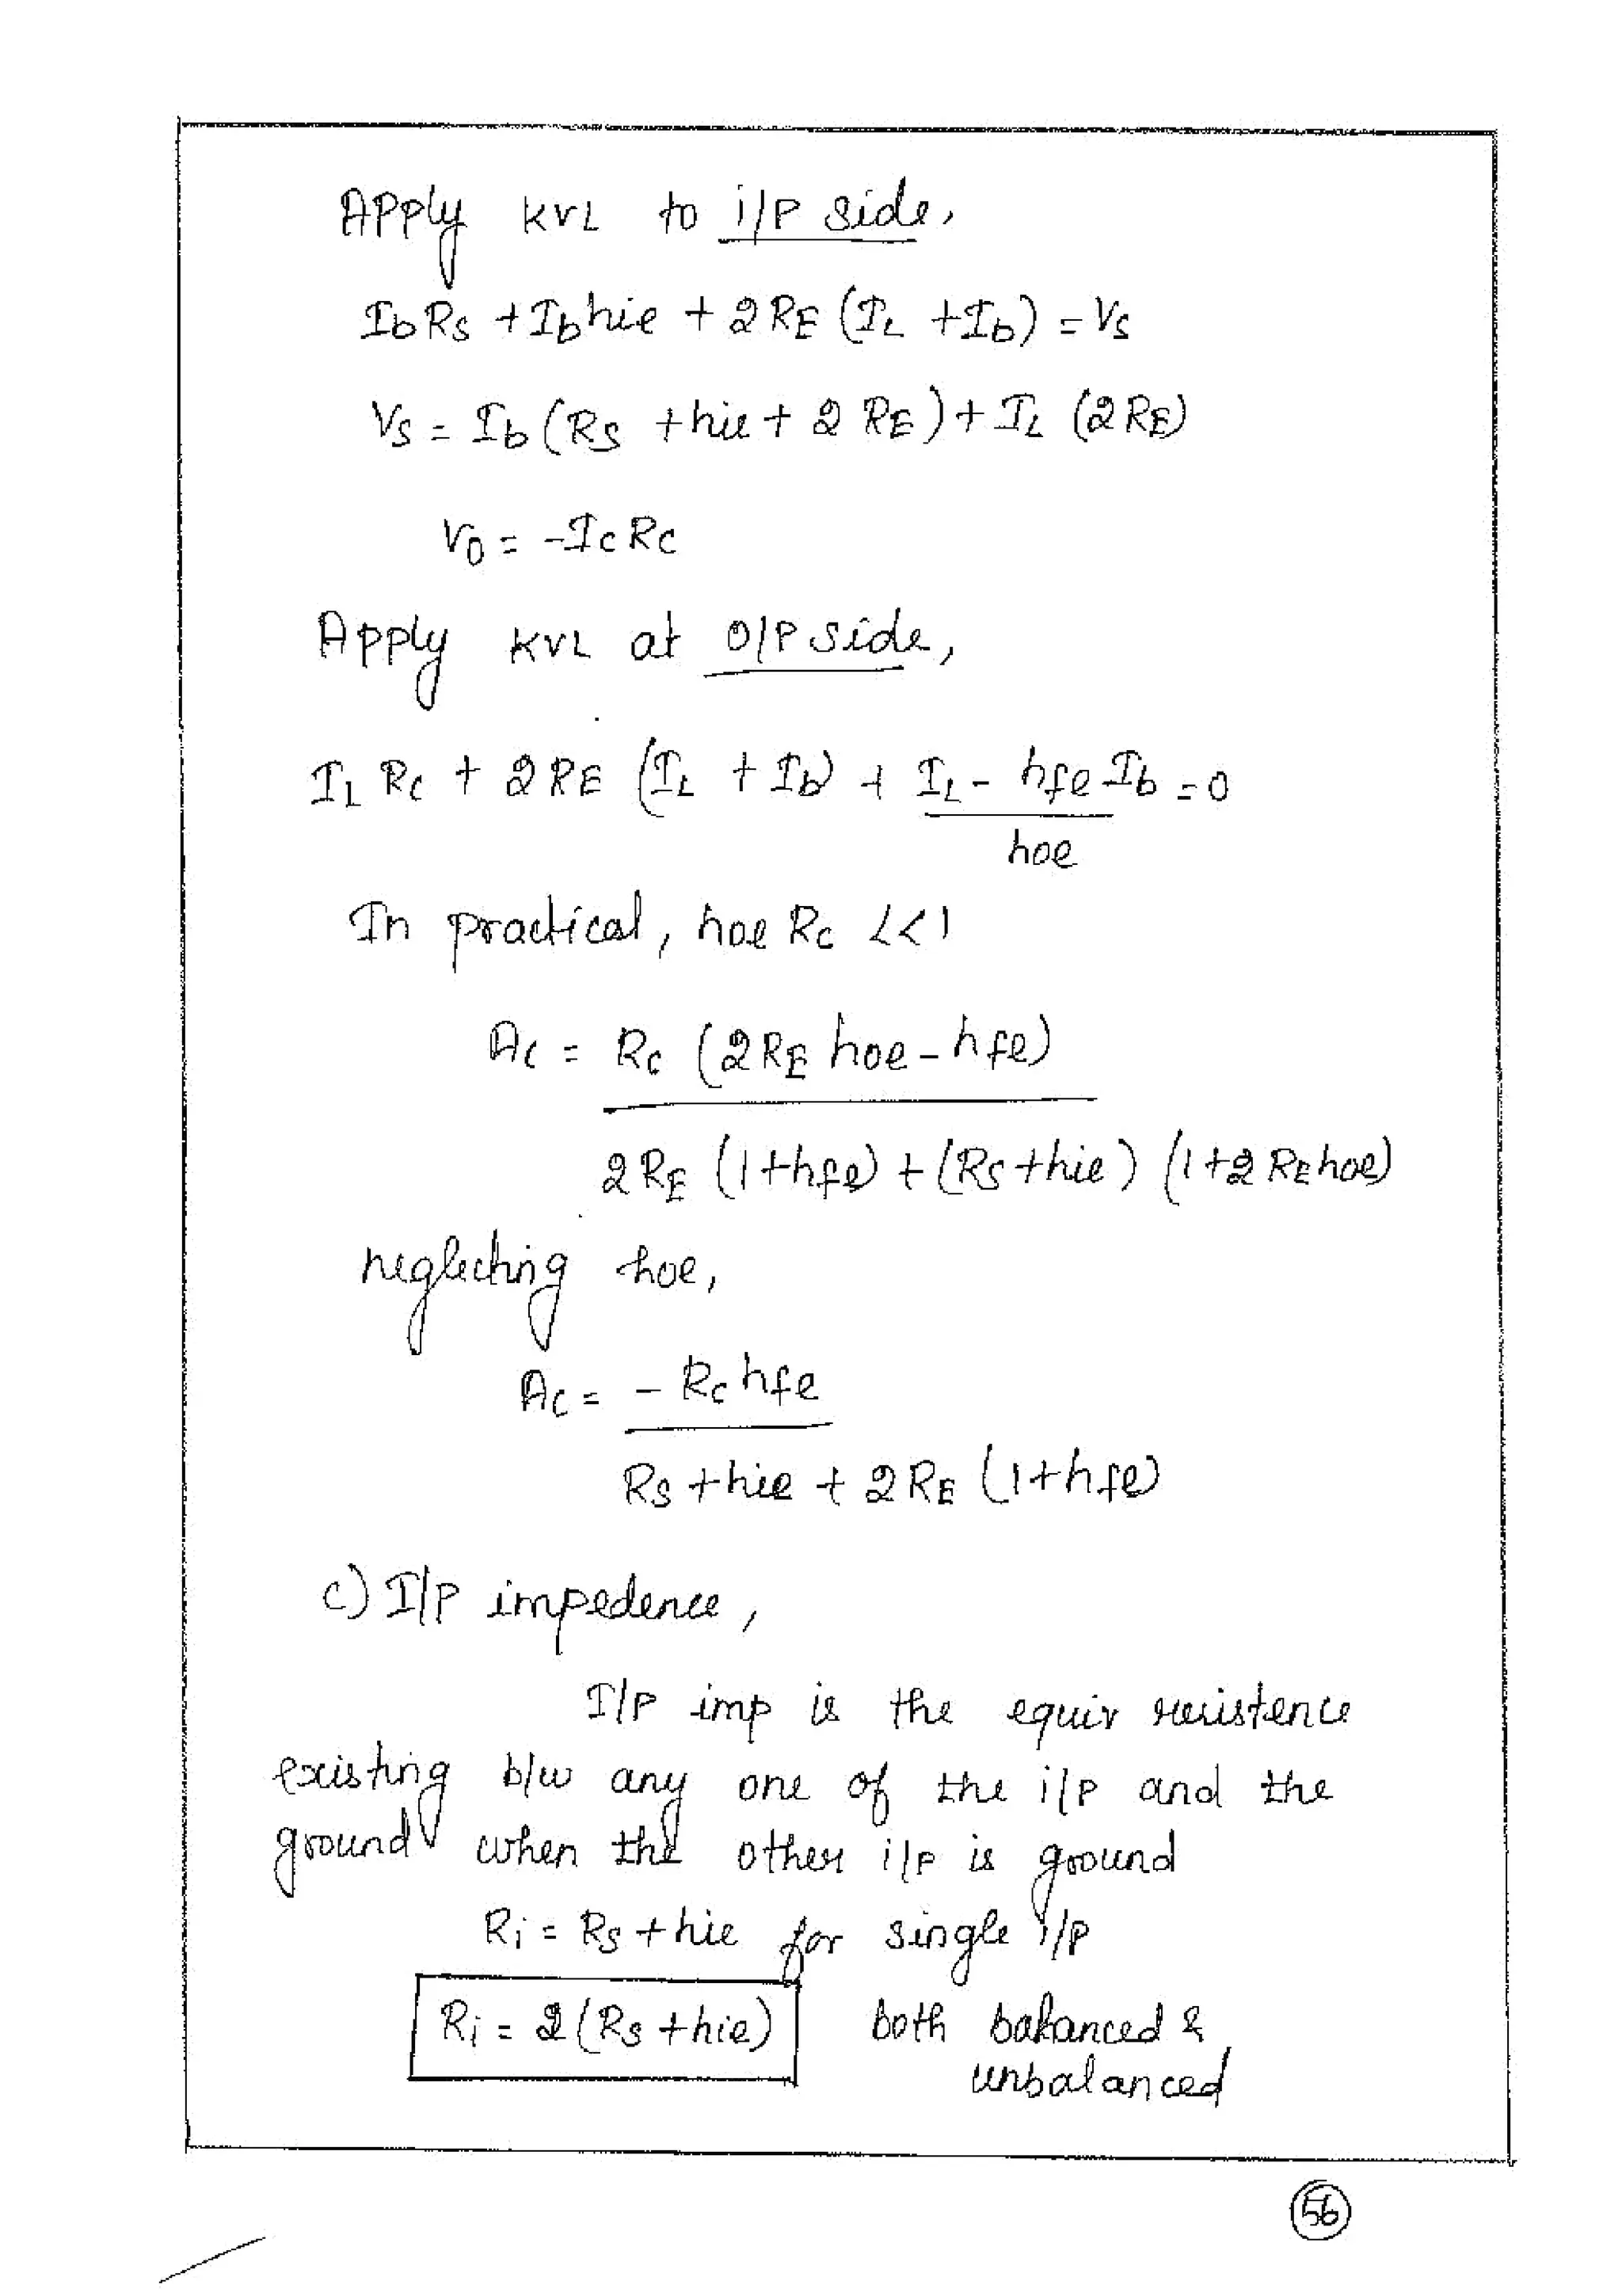 Apply KVL to i/p side,
IbRs + Ibhie + 2RE (IL + Ib) = Vs
Vs = Ib (Rs + hie + 2RE) + IL (2RE)
Vo = -IcRc
Apply KVL at o/p side,
IL Rc + 2RE (IL + Ib) + IL - hfe Ib = 0
hoe
In practical, hoe Rc <<1
Ac = Rc (2RE hoe - hfe)
2RE (1+hfe) + (Rs + hie) (1+2REhoe)
neglecting hoe,
Ac = - Rc hfe
Rs + hie + 2RE (1+hfe)
c) I/P impedence,
I/P imp is the equiv resistence
existing b/w any one of the i/p and the
ground when the other i/p is ground
Ri = Rs + hie for single i/p
Ri = 2(Rs + hie) both balanced &
unbalanced
56